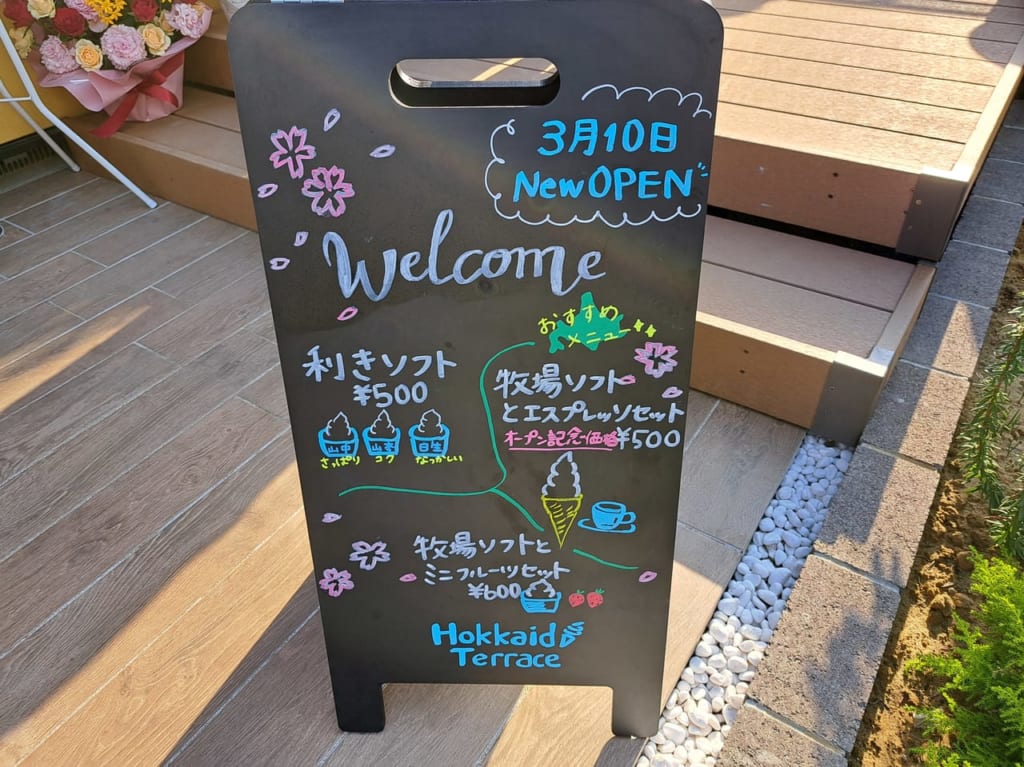 3月10日
New OPEN
Welcome
おすすめ
メニュー
利きソフト
¥500
山中
白生
さっぱり コク なつかしい
牧場ソフト
とエスプレッソセット
オープン記念価格 ¥500
牧場ソフトと
ミニフルーツセット
¥600
Hokkaid
Terrace